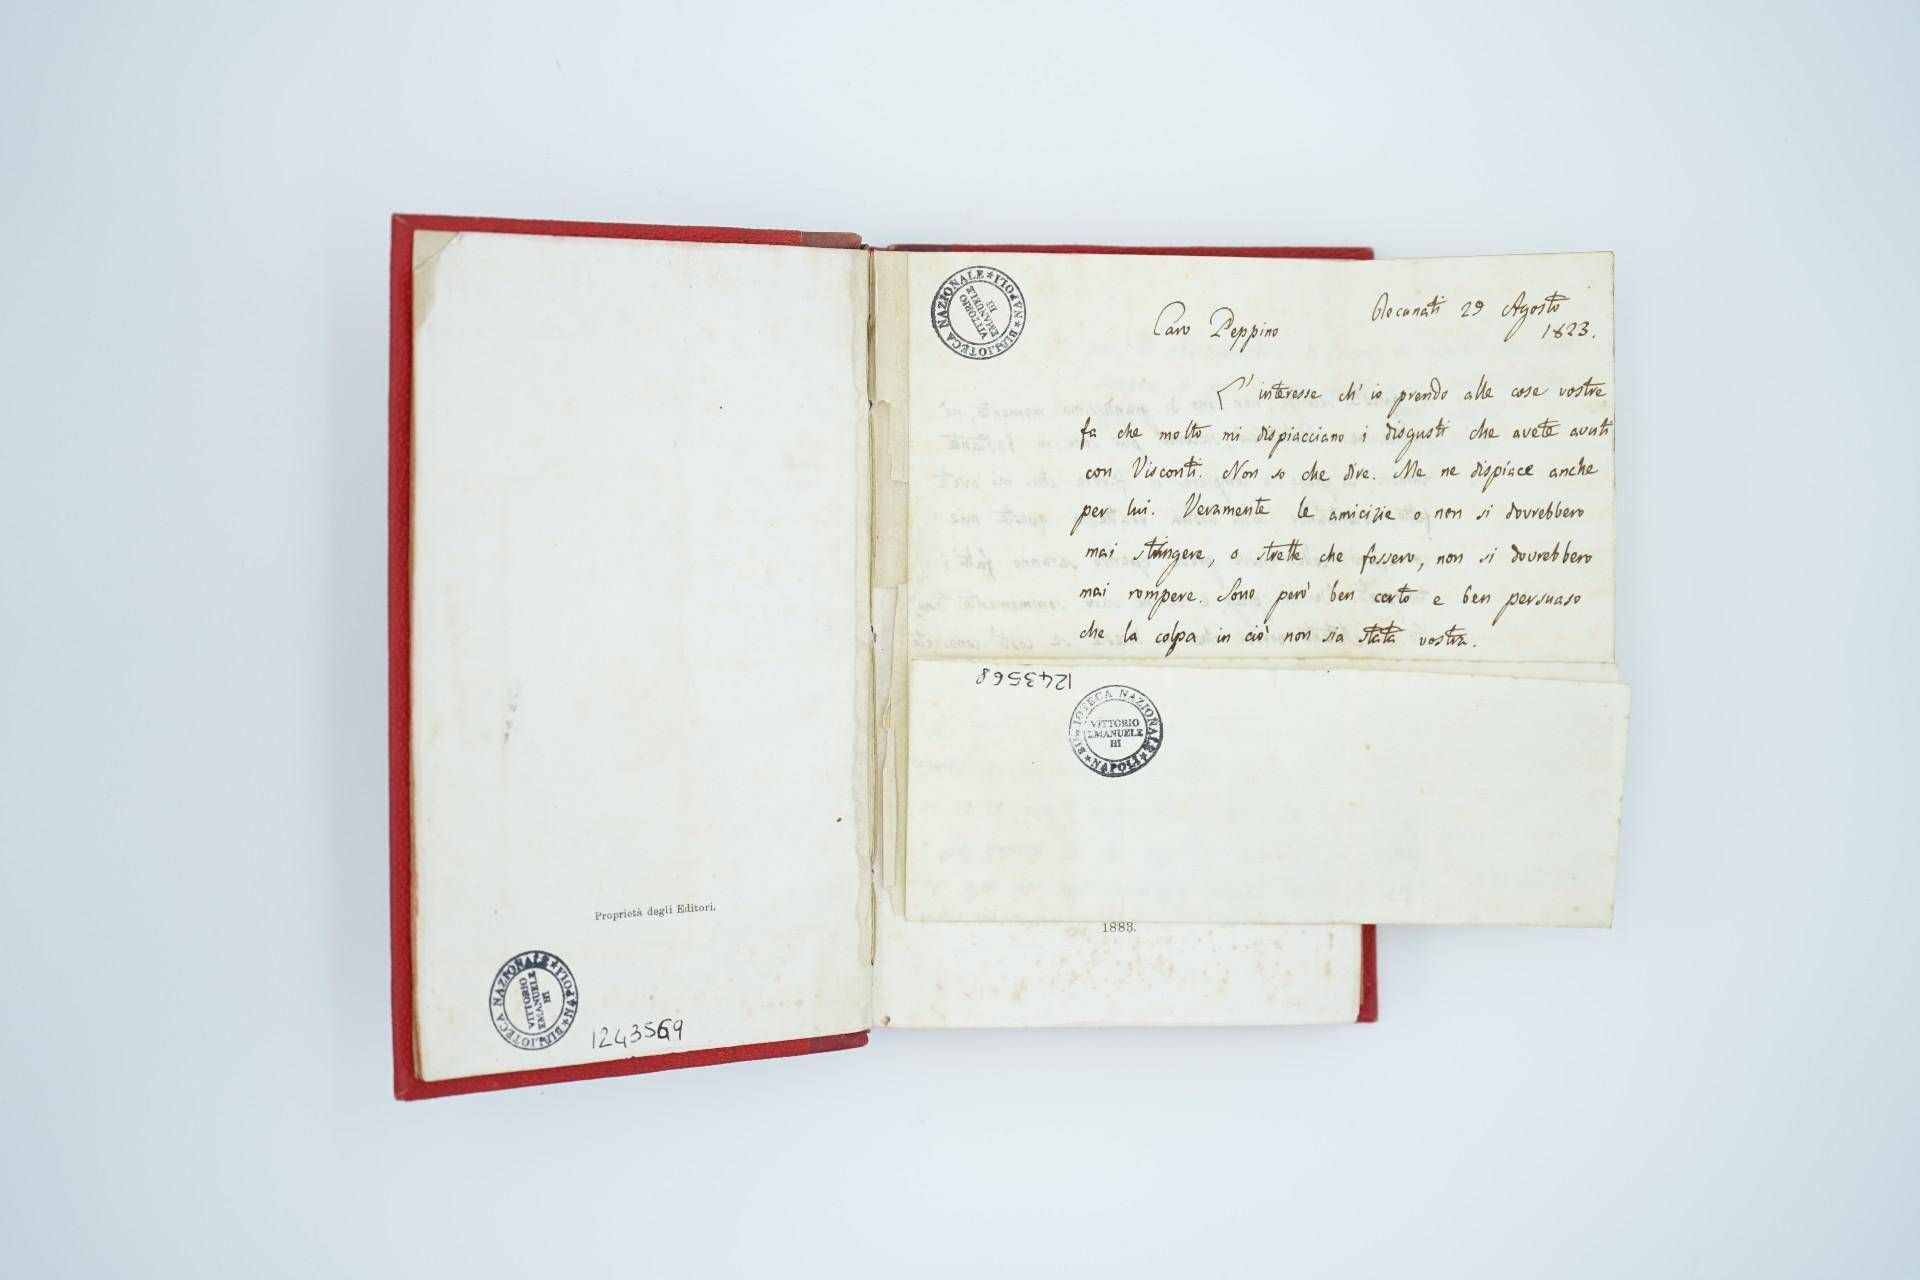 Proprietà degli Editori.
BIBLIOTECA NAZIONALE ★ NAPOLI ★
VITTORIO
EMANUELE
III
1243569
BIBLIOTECA NAZIONALE ★ NAPOLI ★
VITTORIO
EMANUELE
III
Recanati 29 Agosto
1823.
Caro Peppino
L'interesse ch'io prendo alle cose vostre
fa che molto mi dispiacciano i disgusti che avete avuti
con Visconti. Non so che dire. Me ne dispiace anche
per lui. Veramente le amicizie o non si dovrebbero
mai stringere, o strette che fossero, non si dovrebbero
mai rompere. Sono però ben certo e ben persuaso
che la colpa in ciò non sia stata vostra.
1243568
BIBLIOTECA NAZIONALE ★ NAPOLI ★
VITTORIO
EMANUELE
III
1883.